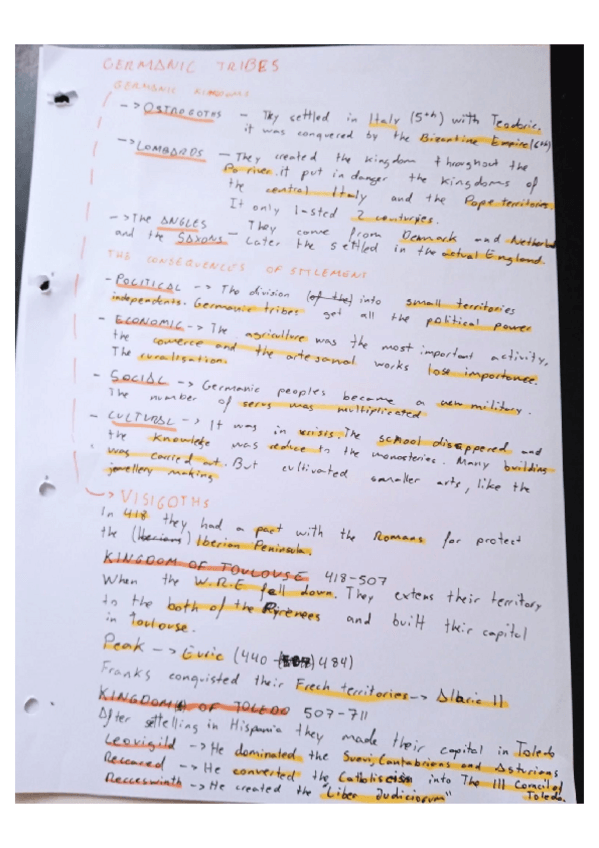 GERMANIC TRIBES
GERMANIC KINGDOMS
-> OSTROGOTHS - They settled in Italy (5th) with Teodoric.
it was conquered by the Bizantine Empire (6th)
-> LOMBARDS - They created the kingdom throughout the
Po river. it put in danger the kingdoms of
the central Italy and the Pope territories.
It only lasted 2 centuries.
-> The ANGLES - They come from Denmark and
and the SAXONS - Later the settled in the actual England.
THE CONSEQUENCES OF SETLEMENT
- POLITICAL -> The division (of the) into small territories
independents. Germanic tribes get all the political power
- ECONOMIC -> The agriculture was the most important activity,
the comerce and the artesanal works lost importance.
The ruralisation.
- SOCIAL -> Germanic peoples became a new military.
The number of servs was multiplicated
- CULTURAL -> It was in krisis. The school disappered and
the knowlege was reduce to the monasteries. Many building
was carried out. But cultivated smaller arts, like the
jewellery making
-> VISIGOTHS
In 418 they had a pact with the Romans for protect
the (Iberians) Iberian Peninsula.
KINGDOM OF TOULOUSE 418-507
When the W.R.E fell down. They extens their territory
to the both of the Pyrenees and built their capital
in Toulouse.
Peak -> Euric (440 - 484)
Franks conquisted their Frech territories -> Alaric II
KINGDOM OF TOLEDO 507-711
After settelling in Hispania they made their capital in Toledo
Leovigild -> He dominated the Suevi, Cantabrians and Asturians
Reccared -> He converted the Catholiscism into The III Council of
Toledo.
Recceswinth -> He created the "Liber Judiciorum"